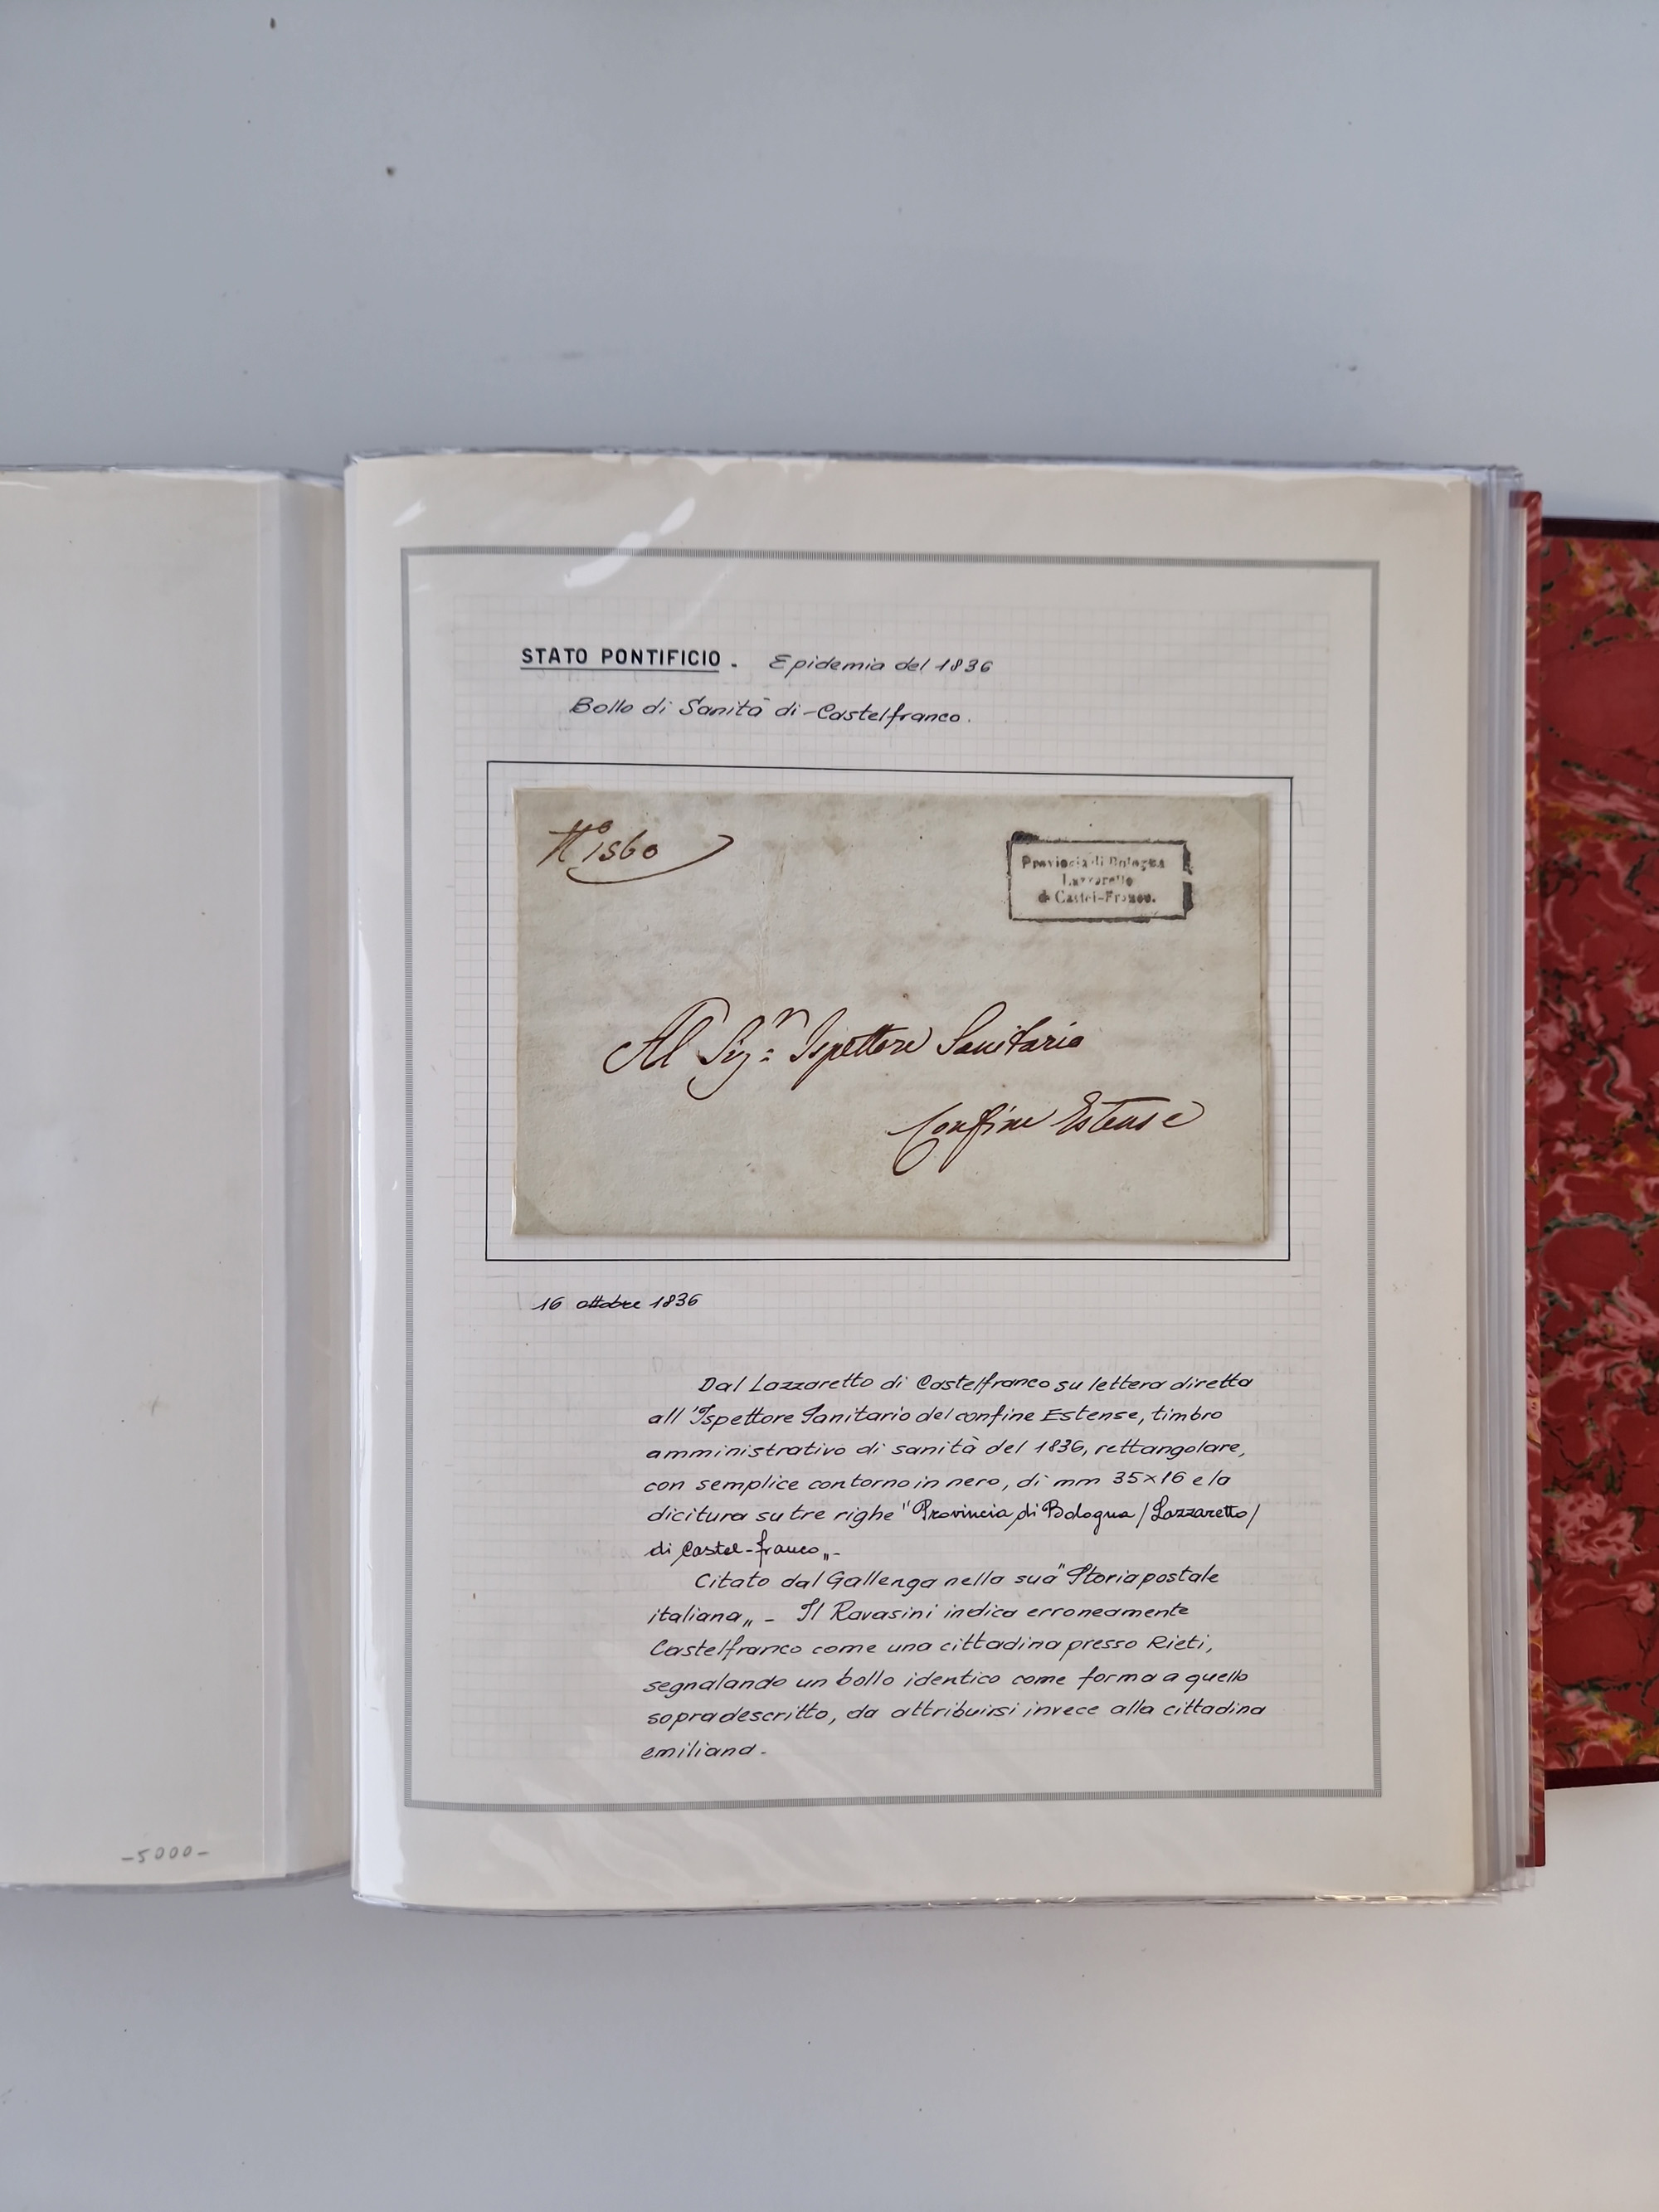 STATO PONTIFICIO. Epidemia del 1836
Bollo di Sanità di Castelfranco.
N° 1560
Provincia di Bologna
Lazzaretto
di Castel-Franco.
Al Sigr: Ispettore Sanitario
Confine Estense
16 ottobre 1836
Dal Lazzaretto di Castelfranco su lettera diretta
all'Ispettore Sanitario del confine Estense, timbro
amministrativo di sanità del 1836, rettangolare,
con semplice contorno in nero, di mm 35x16 e la
dicitura su tre righe "Provincia di Bologna/Lazzaretto/
di Castel-franco„-
Citato dal Gallenga nella sua "Storia postale
italiana„ - Il Ravasini indica erroneamente
Castelfranco come una cittadina presso Rieti,
segnalando un bollo identico come forma a quello
sopradescritto, da attribuirsi invece alla cittadina
emiliana.
-5000-